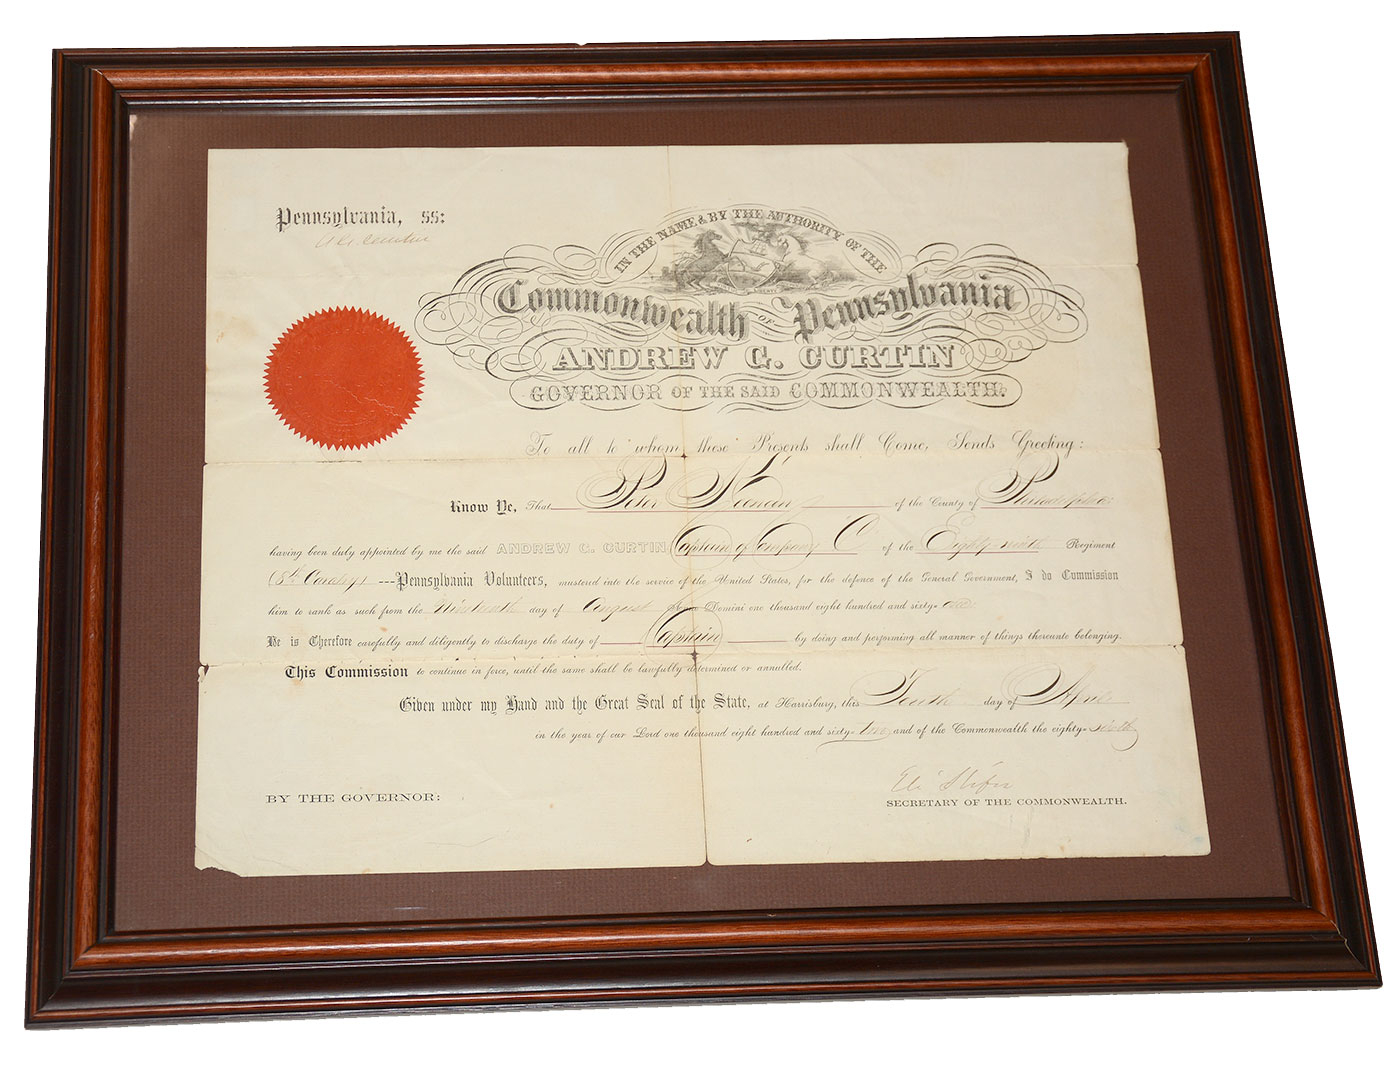 Pennsylvania, SS:
A G Curtin
IN THE NAME & BY THE AUTHORITY OF THE
Commonwealth OF Pennsylvania
ANDREW G. CURTIN
GOVERNOR OF THE SAID COMMONWEALTH.
To all to whom these Presents shall Come, Sends Greeting:
Know Ye, That Peter Keenan of the County of Philadelphia
having been duly appointed by me the said ANDREW G. CURTIN Captain of Company C of the Eighty-ninth Regiment
(8th Cavalry) ---Pennsylvania Volunteers, mustered into the service of the United States, for the defence of the General Government, I do Commission
him to rank as such from the Nineteenth day of August Domini one thousand eight hundred and sixty-one
He is Therefore carefully and diligently to discharge the duty of Captain by doing and performing all manner of things thereunto belonging.
This Commission to continue in force, until the same shall be lawfully determined or annulled.
Given under my Hand and the Great Seal of the State, at Harrisburg, this Tenth day of April
in the year of our Lord one thousand eight hundred and sixty-two, and of the Commonwealth the eighty-sixth
Eli Slifer
BY THE GOVERNOR:
SECRETARY OF THE COMMONWEALTH.